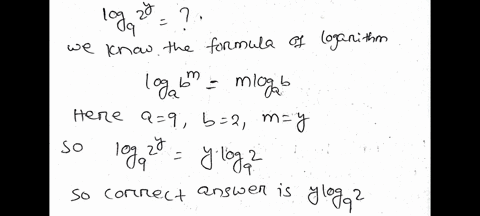 log₉2^y = ?.
we know the formula of logarithm
logₐb^m = mlogₐb
Here a=9, b=2, m=y
So log₉2^y = y·log₉2
So correct answer is ylog₉2